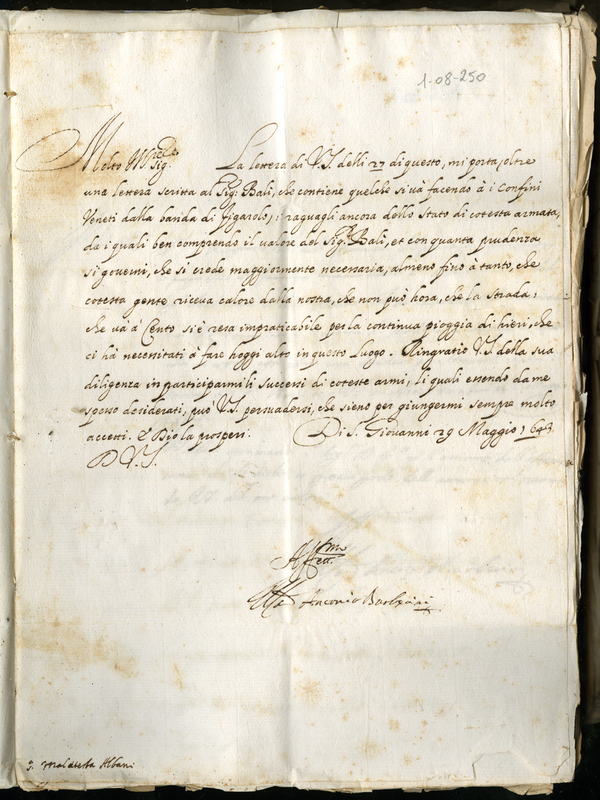 1-08-250
Molto Ill.re Sig.
La lettera di V.S. delli 27 di questo, mi porta, oltre
una lettera scritta al Sig.r Balì, che contiene quelche si và facendo à i Confini
Veneti dalla banda di Figarolo, i raguagli ancora dello Stato di cotesta armata,
da i quali ben comprendo il valore del Sig.r Balì, et con quanta prudenza
si governi, che si crede maggiormente necessaria, almeno fino à tanto, che
cotesta gente riceva calore dalla nostra, che non può hora, che la strada,
che và à Cento si è resa impraticabile per la continua pioggia di hieri, che
ci hà necessitati à fare hoggi alto in questo luogo. Ringratio V.S. della sua
diligenza in participarmi li successi di coteste armi, li quali essendo da me
spesso desiderati, può V.S. persuadersi, che sieno per giungermi sempre molto
accetti. E Dio la prosperi. Di S. Giovanni 29 Maggio 1643
D V.S.
Aff.mo
Antonio
S. Malatesta Albani